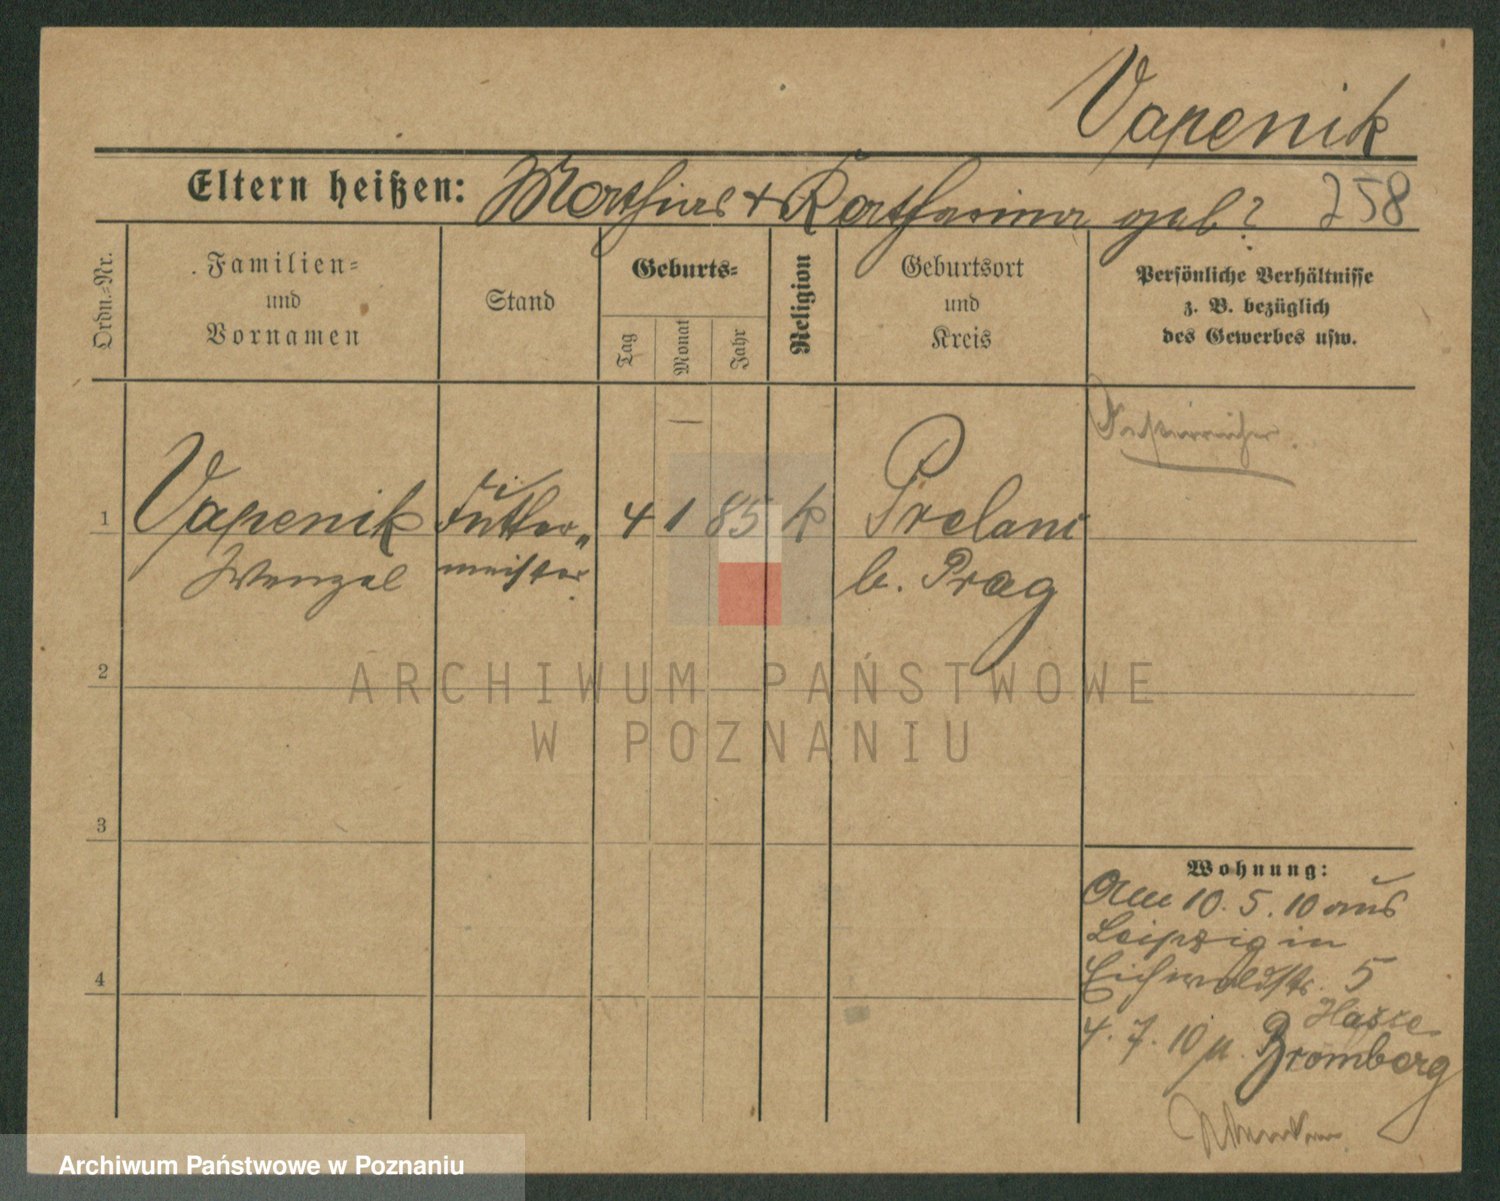 Vapenik
Eltern heißen: Mathias + Katharina geb?
258
Ordn.=Nr.
Familien=
und
Vornamen
Stand
Geburts=
Tag
Monat
Jahr
Religion
Geburtsort
und
Kreis
Persönliche Verhältnisse
z. B. bezüglich
des Gewerbes usw.
1
Vapenik
Wenzel
Futter„
meister
4 1 85 k
Prelani
b. Prag
Oesterreicher.
2
3
4
Wohnung:
Am 10. 5. 10 aus
Leipzig in
Eichwaldstr. 5
4. 7. 10 n. Bromberg
ARCHIWUM PAŃSTWOWE
W POZNANIU
Archiwum Państwowe w Poznaniu